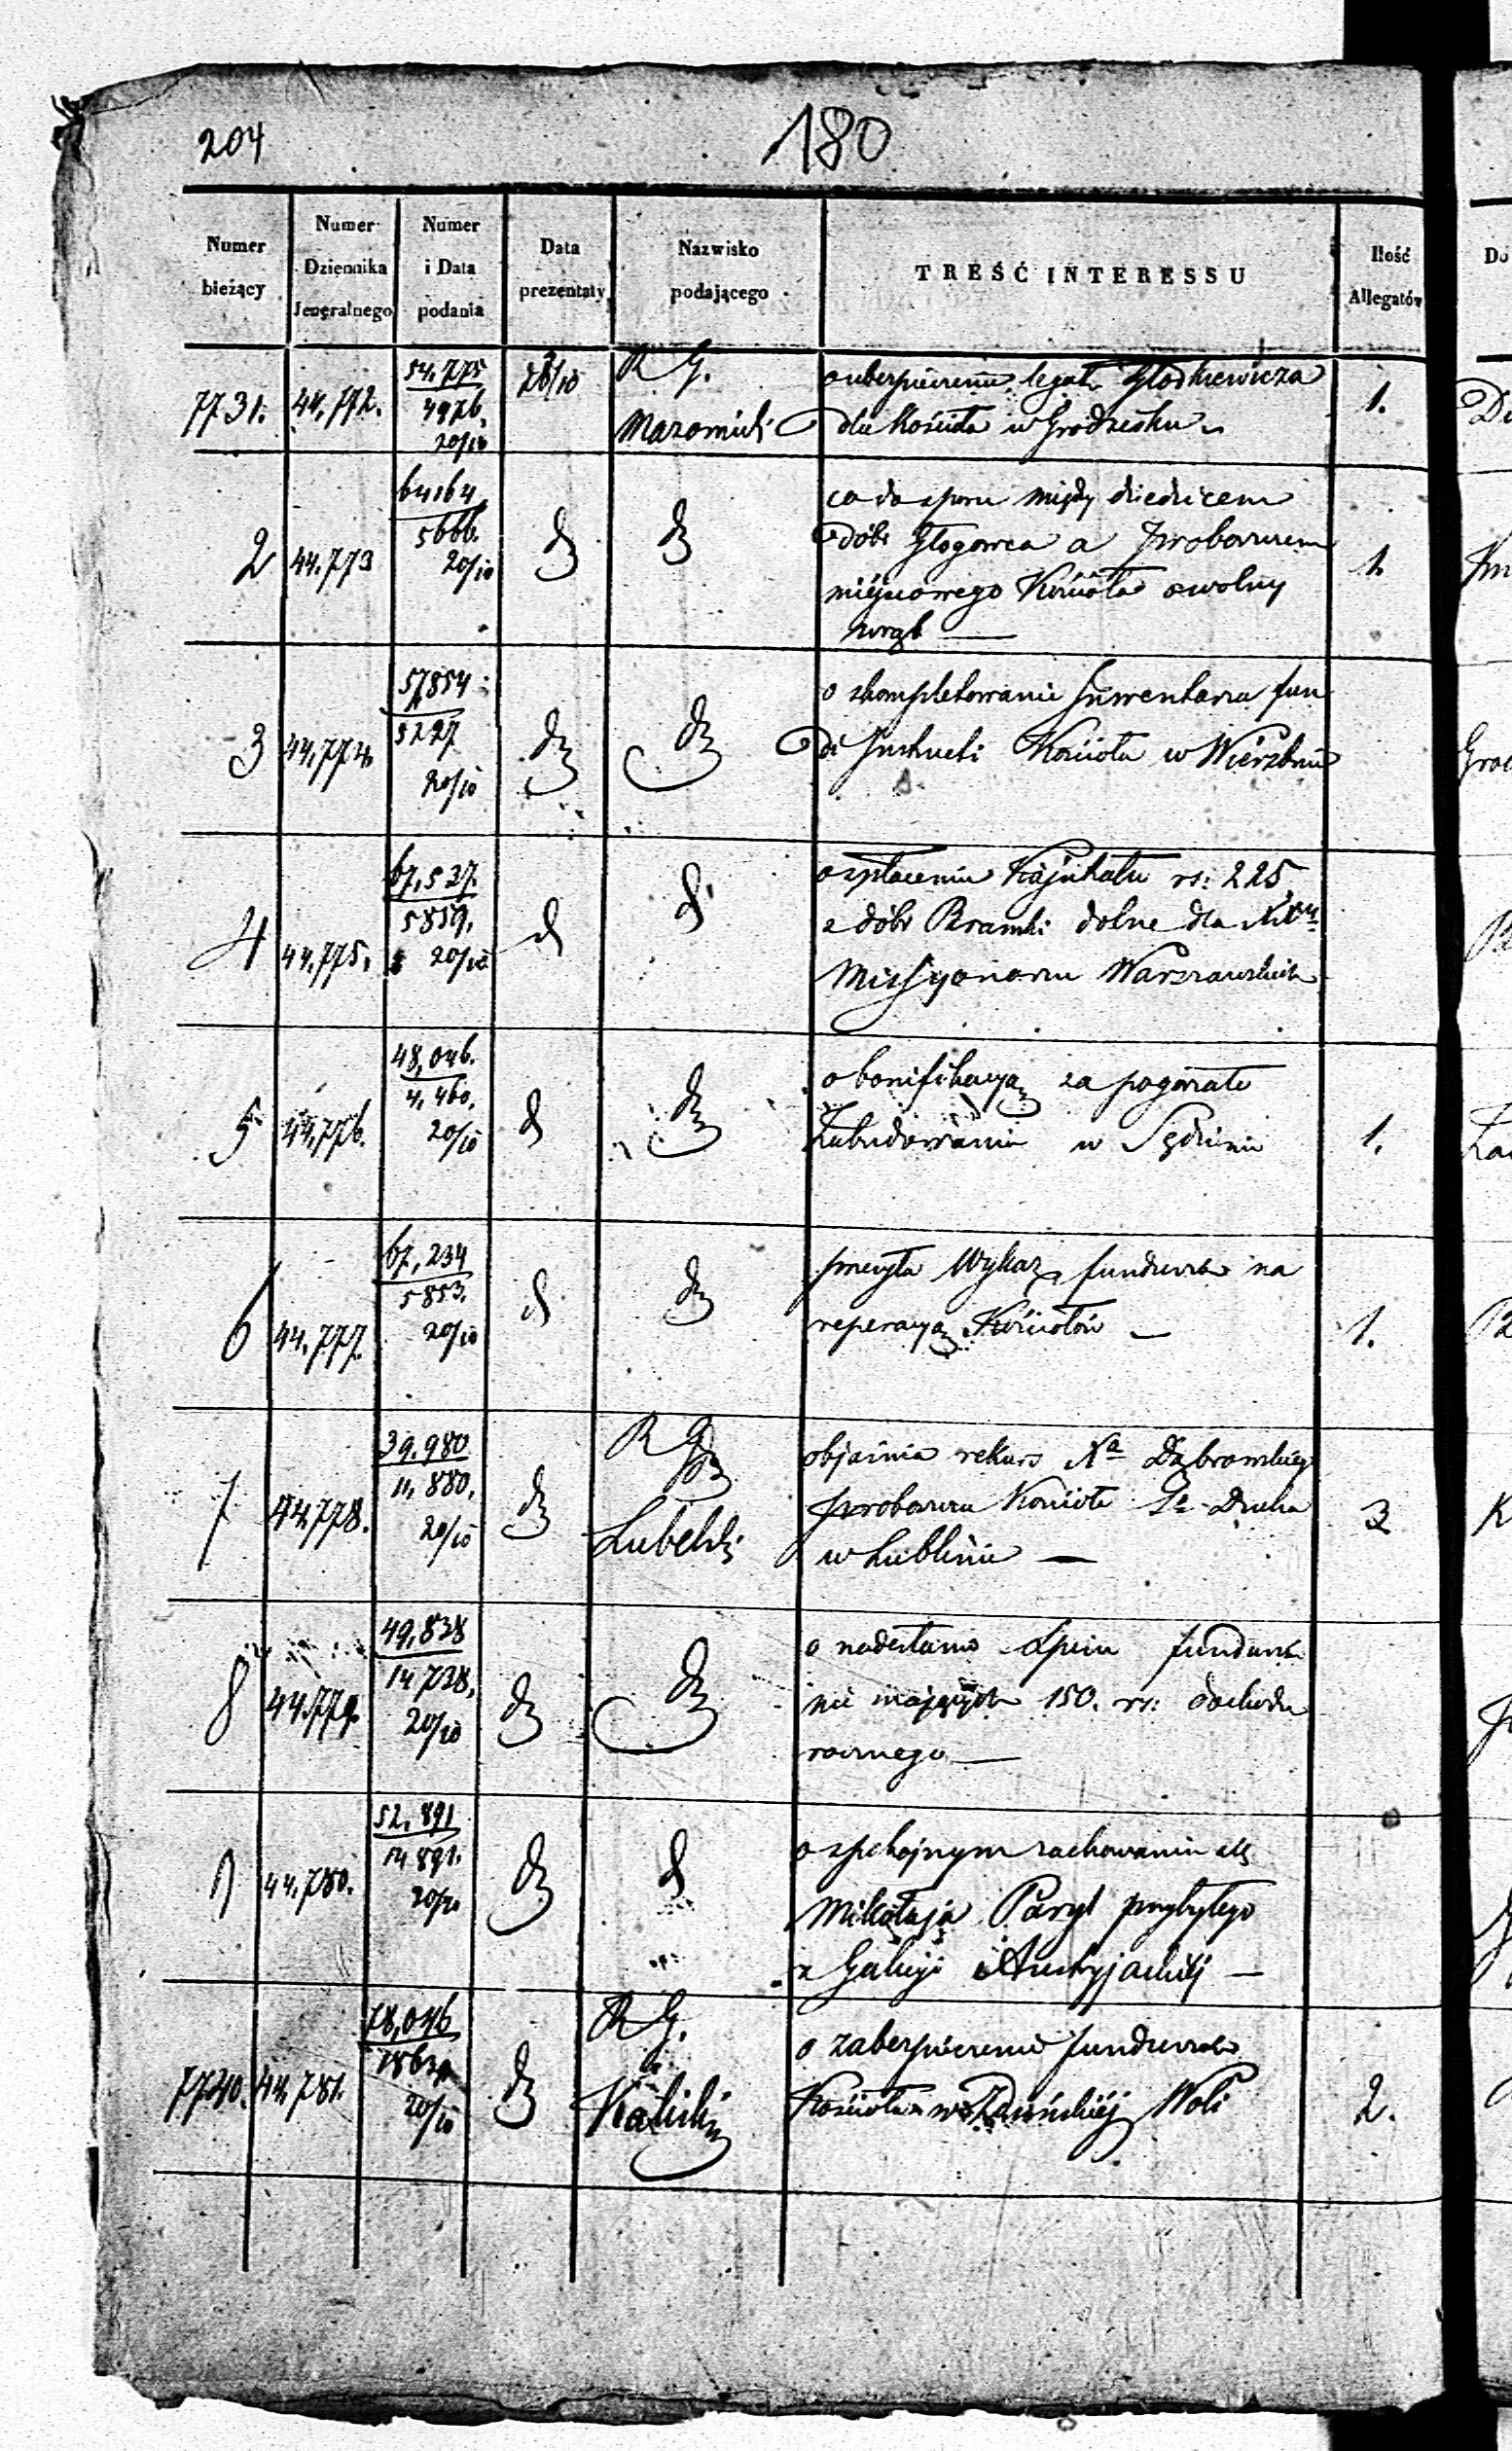 204
180
Numer bieżący
Numer Dziennika Jeneralnego
Numer i Data podania
Data prezentaty
Nazwisko podającego
TREŚĆ INTERESSU
Ilość Allegatów
Do
7731. 44,772. 54,775 4976. 20/10 28/10 R G. Mazowiecki 1.
o ubezpieczeniu legatu Głodkiewicza
dla Kościoła w Grodzisku
2 44.773 64164 5666. 20/10 d d 1.
co do sporu między dziedzicem
dóbr Głogowca a Proboszczem
miejscowego Kościoła o wolny
wrąb —
3 44,774. 57854 5227 20/10 d d
o skompletowanie Inwentarza fun-
di Instructi Kościoła w Wierzbnie
4 44,775. 67,537. 5859. 20/10 d d
o spłaceniu Kapitału rs: 225
z dóbr Bramki dolne dla XX
Missyonarzu Warszawskich
5 44,776. 48,046. 4,460. 20/10 d d 1.
o bonifikacyą za pogorzałe
Zabudowania w Sędzinie
6 44,777. 67,234 5853. 20/10 d d 1.
przesyła Wykaz funduszów na
reperacyą Kościołów —
7 44,778. 39.980 11,880. 20/10 d R G Lubelski 3
objaśnia rekurs Xa Dąbrowskiego
Proboszcza Kościoła Sgo Ducha
w Lublinie —
8 44,779. 49,838 14738, 20/10 d d
o nadesłanie Spisu funduszów
nie mających 150. rs: dochodu
rocznego —
9 44,780. 52,891 14891. 20/10 d d
o spokojnym zachowaniu się
Mikołaja Paryl przybyłego
z Galicyi Austryjackiej —
7740. 44,781. 78,046 20/10 d R G. Kaliski 2.
o zabezpieczenie funduszów
Kościoła w Zduńskiej Woli